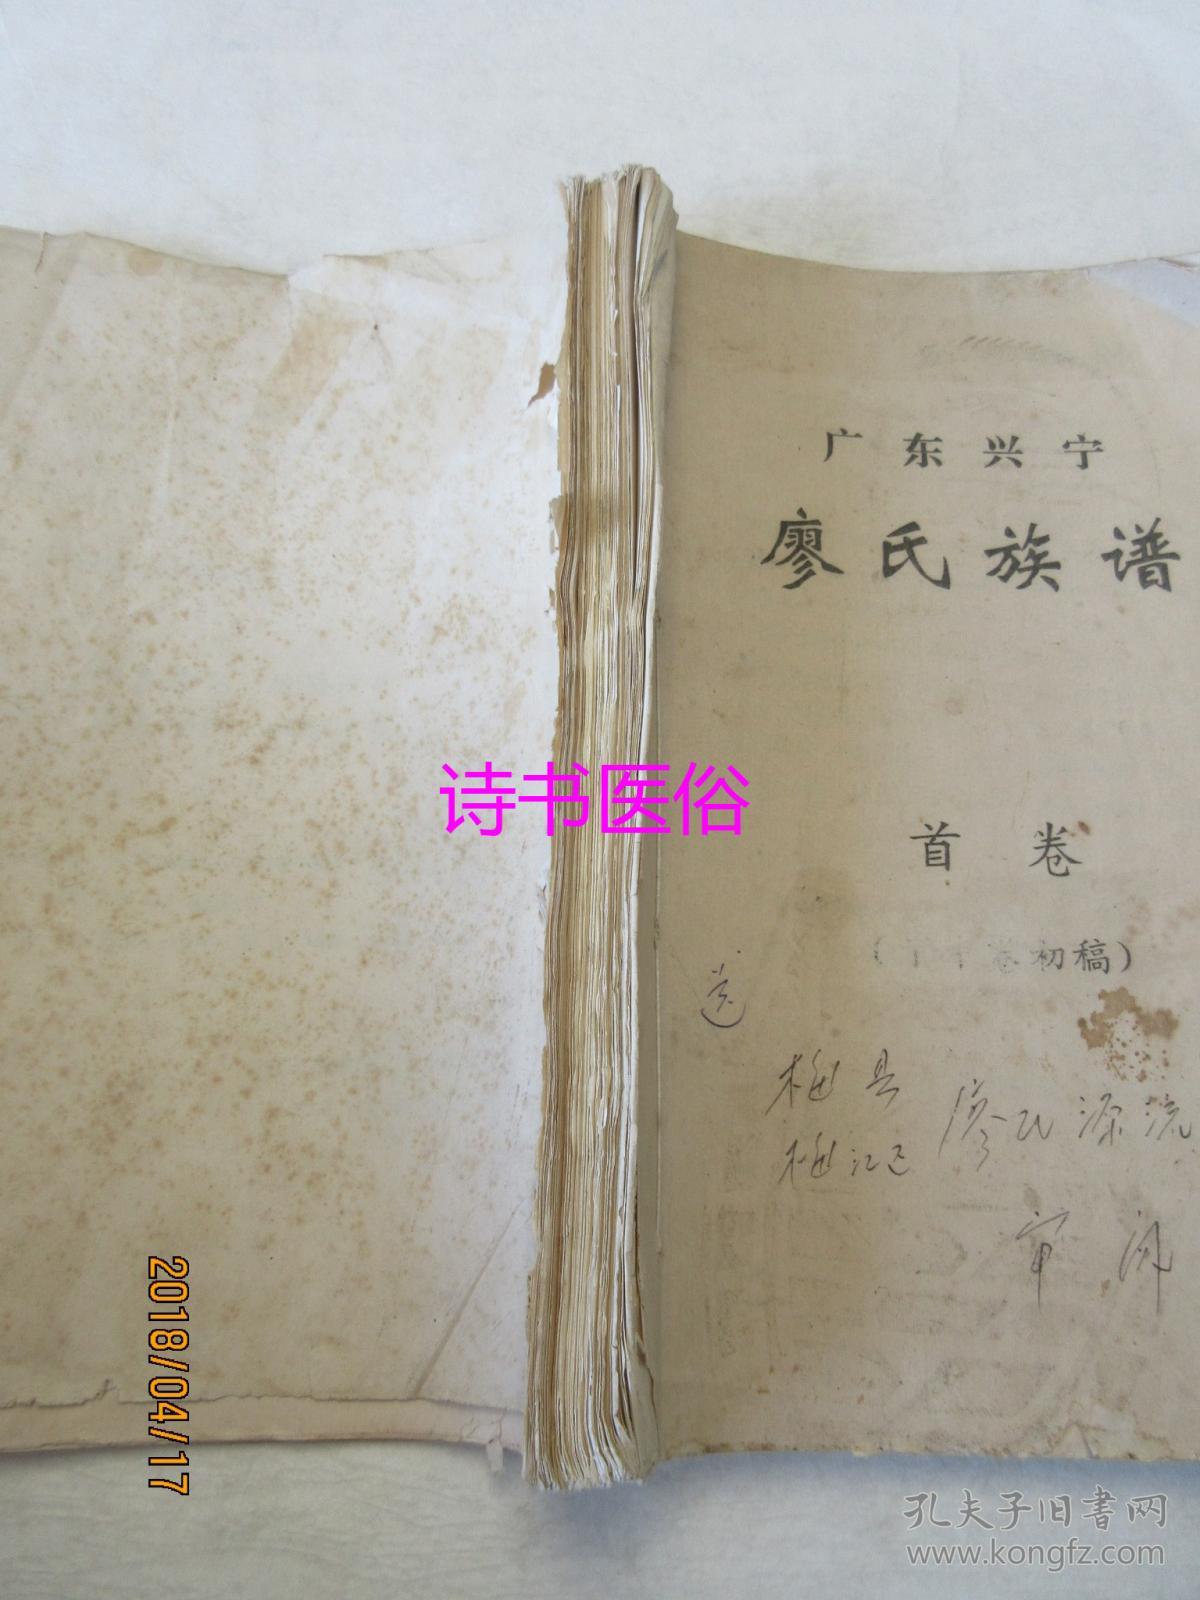 广东兴宁
廖氏族谱
首卷
初稿）
送
梅县
梅江区
廖氏源流
审阅
诗书医俗
2018/04/17
孔夫子旧书网
www.kongfz.com